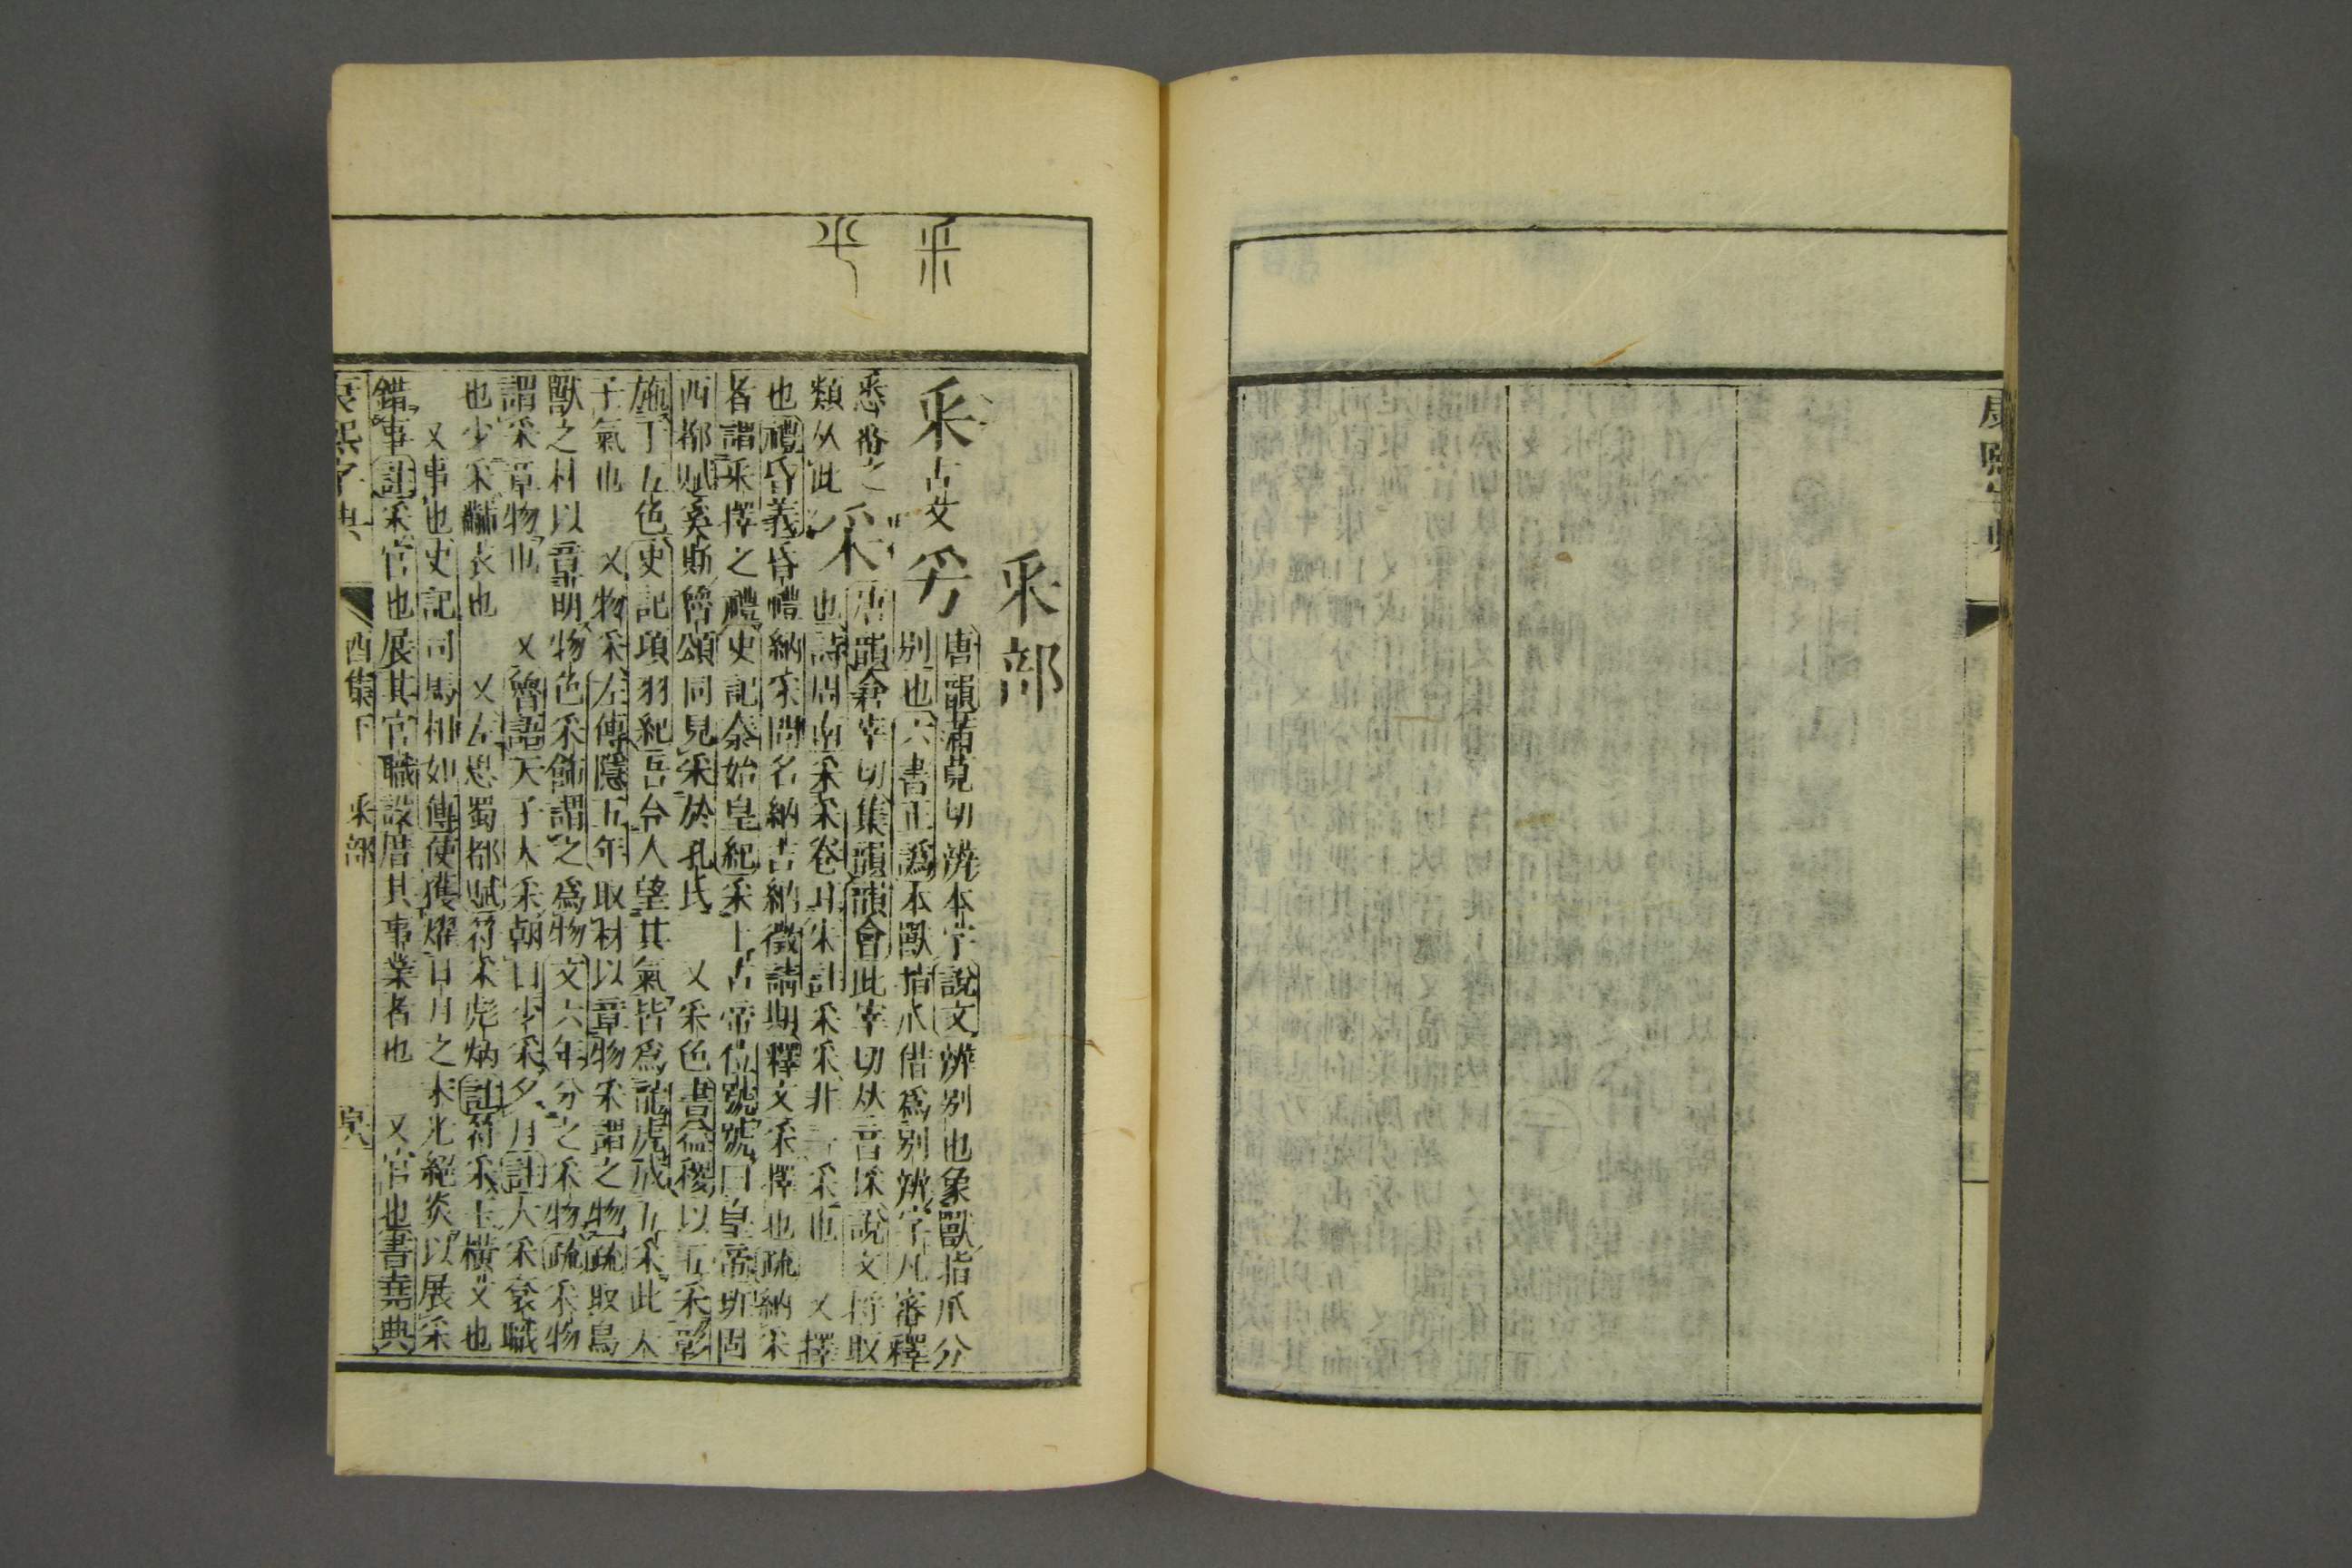 康熙字典
釆
釆部
釆古文
唐韻蒲莧切辨本字說文辨別也象獸指爪分
別也六書正譌本獸指爪借爲別辨字凡審釋
悉番之
類从此
采
唐韻倉宰切集韻韻會此宰切从音採說文捋取
也詩周南采采卷耳朱註采采非一采也 又擇
也禮昏義昏禮納采問名納吉納徵請期釋文采擇也疏納采
者謂采擇之禮 史記秦始皇紀采上古帝位號號曰皇帝班固
西都賦奚斯魯頌同見采於孔氏 又采色書益稷以五采彰
施于五色史記項羽紀吾令人望其氣皆爲龍虎成五采此天
子氣也 又物采左傳隱五年取材以章物采謂之物疏取鳥
獸之材以章明物色采飾謂之爲物文六年分之采物疏采物
謂采章物也 又魯語天子大采朝日少采夕月註大采袞職
也少采黼衣也 又左思蜀都賦符采彪炳註符采玉橫文也
又事也史記司馬相如傳使獲燿日月之末光絕炎以展采
錯事註采官也展其官職設厝其事業者也 又官也書堯典
康熙字典 酉集下 釆部